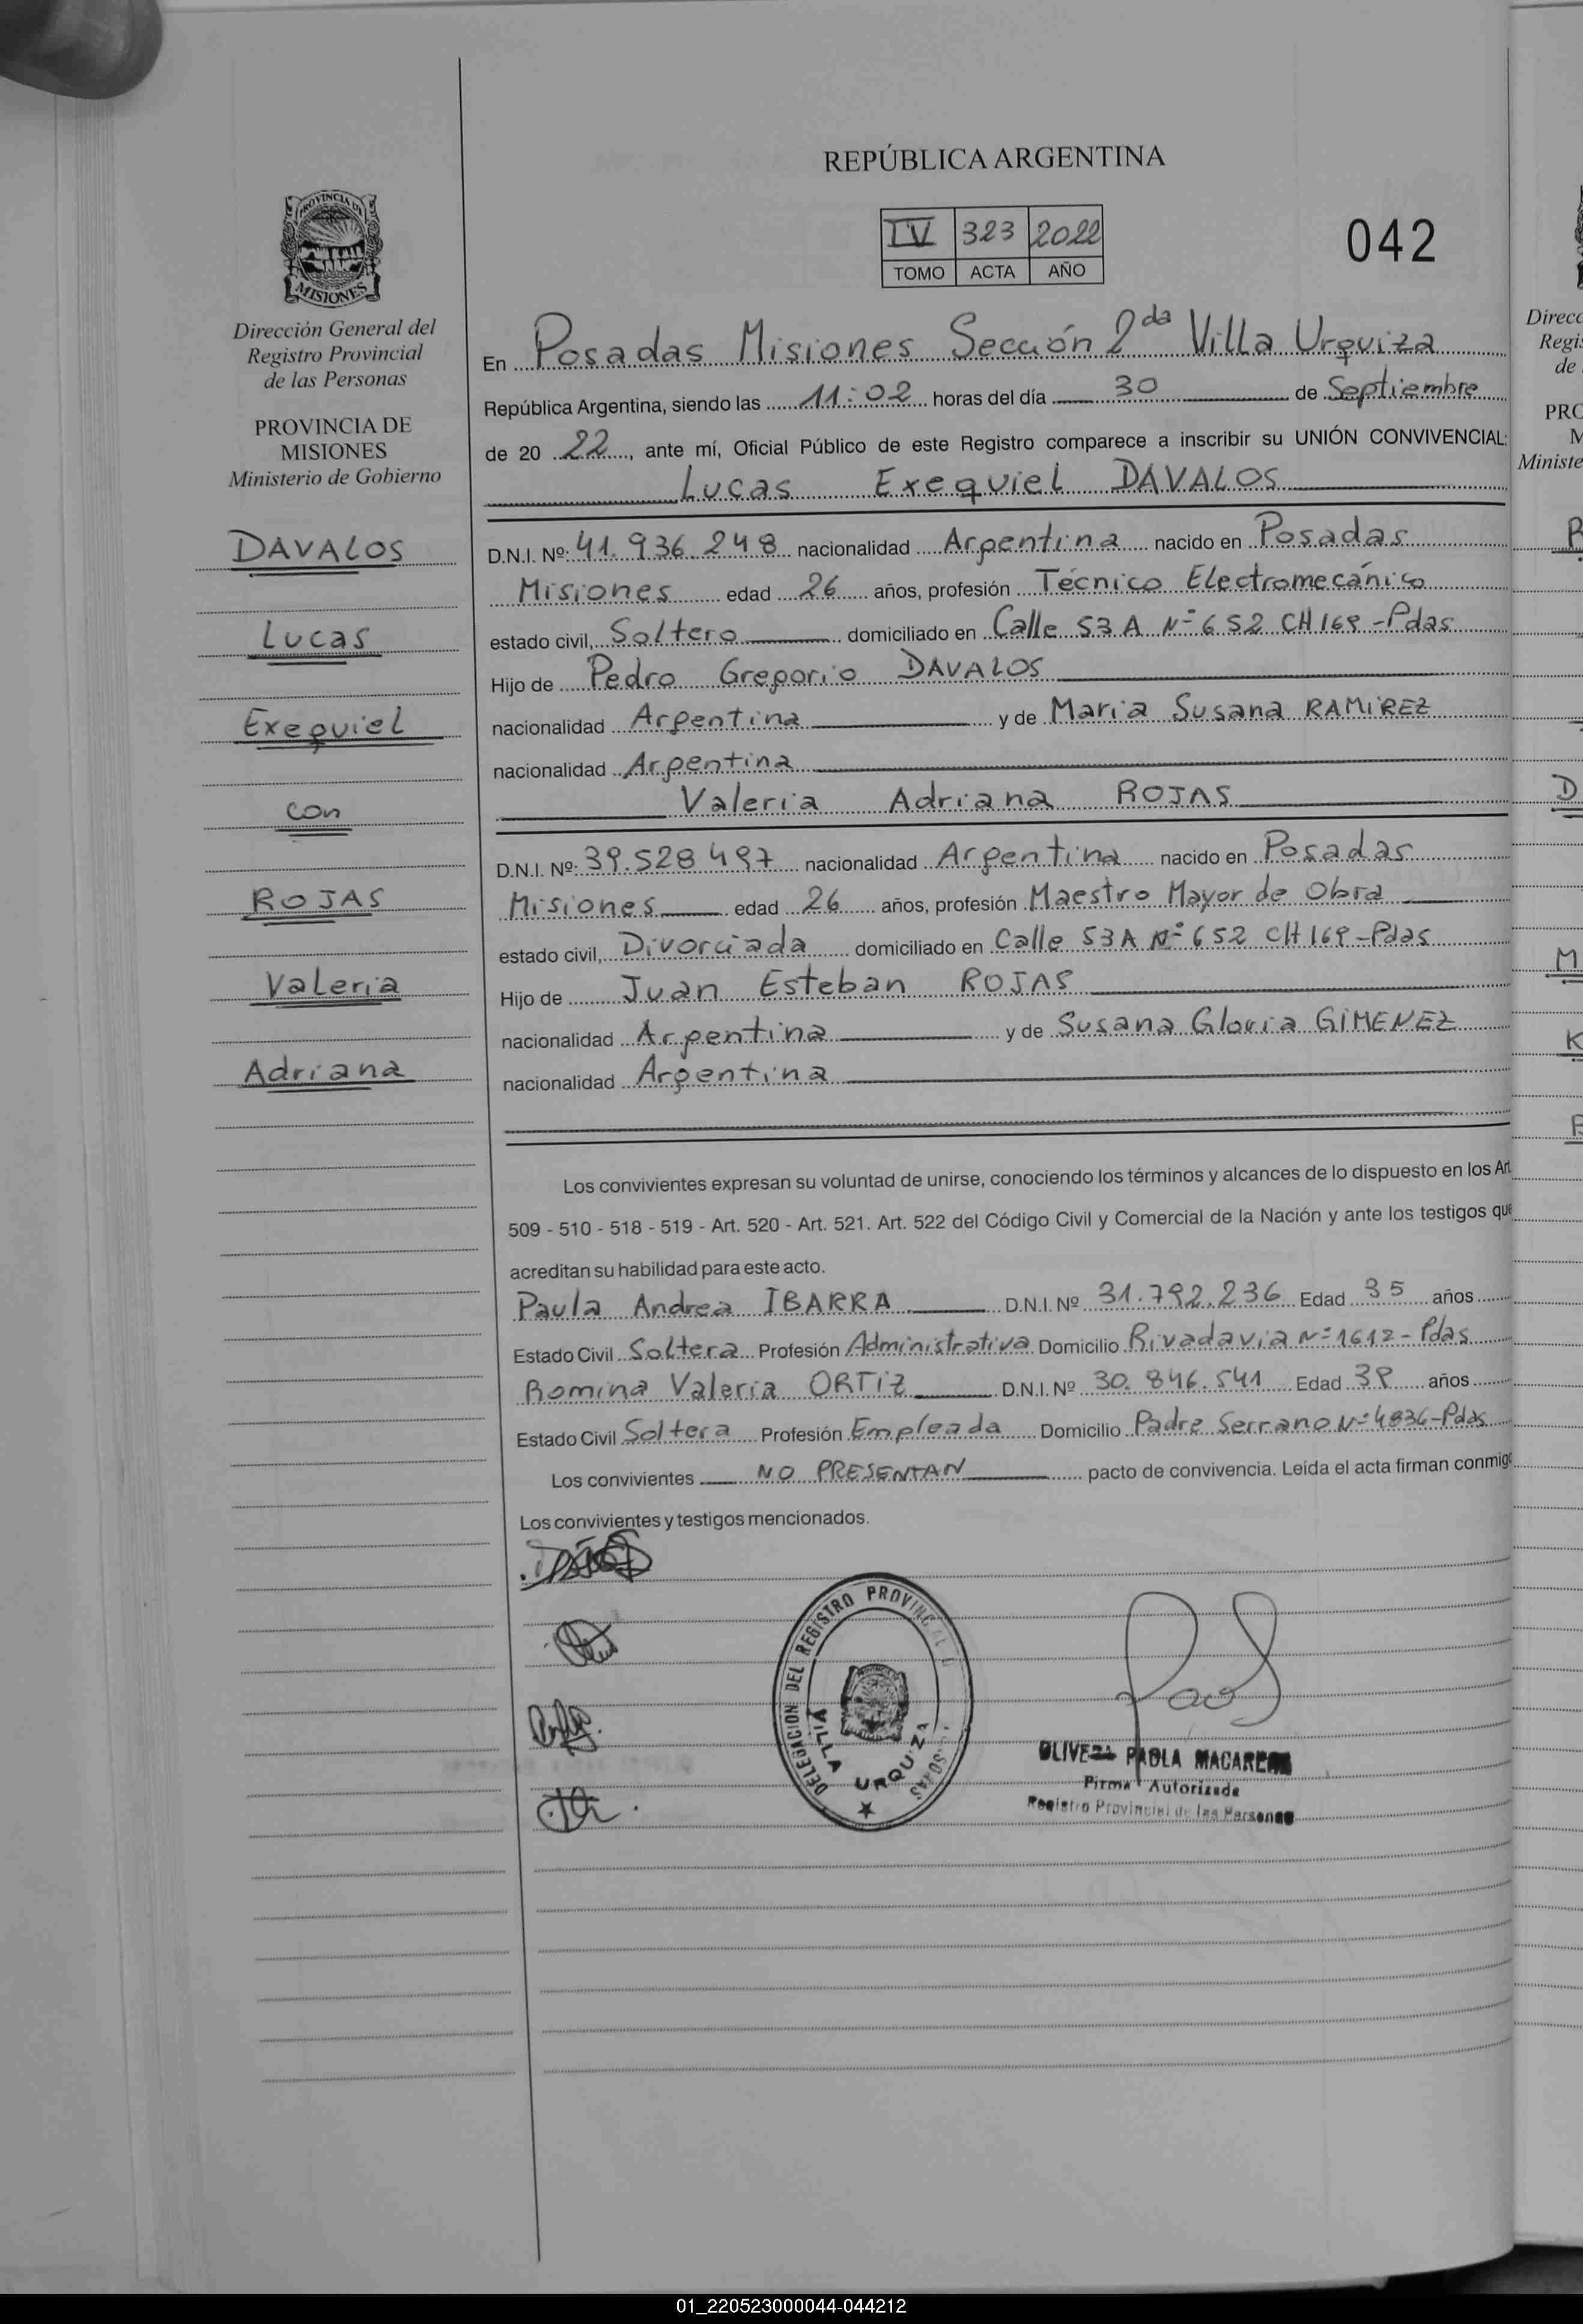 REPÚBLICA ARGENTINA
IV 323 2022
TOMO ACTA AÑO
042
PROVINCIA DE
MISIONES
Dirección General del
Registro Provincial
de las Personas
PROVINCIA DE
MISIONES
Ministerio de Gobierno
DAVALOS
Lucas
Exequiel
con
ROJAS
Valeria
Adriana
En Posadas Misiones Sección 2da Villa Urquiza
República Argentina, siendo las 11:02 horas del día 30 de Septiembre
de 20 22, ante mí, Oficial Público de este Registro comparece a inscribir su UNIÓN CONVIVENCIAL:
Lucas Exequiel DAVALOS
D.N.I. Nº: 41.936.248 nacionalidad Argentina nacido en Posadas
Misiones edad 26 años, profesión Técnico Electromecánico
estado civil, Soltero domiciliado en Calle 53 A Nº 652 CH 169 - Pdas
Hijo de Pedro Gregorio DAVALOS
nacionalidad Argentina y de Maria Susana RAMIREZ
nacionalidad Argentina
Valeria Adriana ROJAS
D.N.I. Nº: 39.528.497 nacionalidad Argentina nacido en Posadas
Misiones edad 26 años, profesión Maestro Mayor de Obra
estado civil, Divorciada domiciliado en Calle 53 A Nº 652 CH 169 - Pdas
Hijo de Juan Esteban ROJAS
nacionalidad Argentina y de Susana Gloria GIMENEZ
nacionalidad Argentina
Los convivientes expresan su voluntad de unirse, conociendo los términos y alcances de lo dispuesto en los Art
509 - 510 - 518 - 519 - Art. 520 - Art. 521. Art. 522 del Código Civil y Comercial de la Nación y ante los testigos que
acreditan su habilidad para este acto.
Paula Andrea IBARRA D.N.I. Nº 31.792.236 Edad 35 años
Estado Civil Soltera Profesión Administrativa Domicilio Rivadavia Nº 1612 - Pdas
Romina Valeria ORTIZ D.N.I. Nº 30.846.541 Edad 38 años
Estado Civil Soltera Profesión Empleada Domicilio Padre Serrano Nº 4836 - Pdas
Los convivientes NO PRESENTAN pacto de convivencia. Leída el acta firman conmigo
Los convivientes y testigos mencionados.
DELEGACION DEL REGISTRO PROVINCIAL
VILLA URQUIZA
PAOLA MACARENA
Firma Autorizada
Registro Provincial de las Personas
01_220523000044-044212